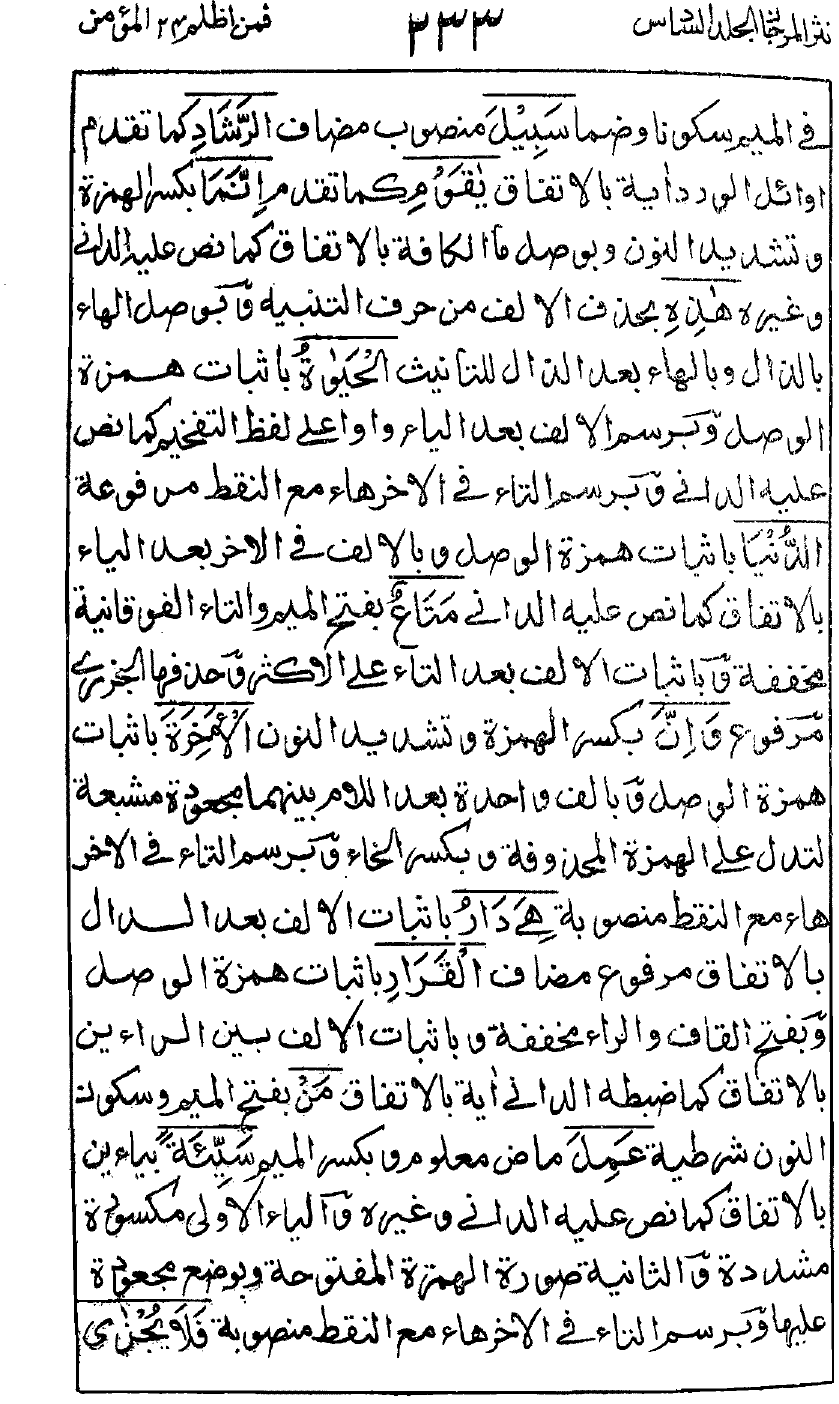 نثر المرجان الجلد السادس ٢٣٣ فمن اظلم ٢٤ المؤمن
في الميم سكونا وضما سَبِيْلَ منصوب مضاف الرَّشَادِ كما تقدم
اوائل الورد أية بالاتفاق يٰقَوْمِ كما تقدم اِنَّمَا بكسر الهمزة
وتشديد النون وبوصل ما الكافة بالاتفاق كما نص عليه الداني
وغيره هٰذِهِ بحذف الالف من حرف التنبيه وّبوصل الهاء
بالذال وبالهاء بعد الذال للتانيث الْحَيٰوةُ باثبات همزة
الوصل وّبرسم الالف بعد الياء واوا على لفظ التفخيم كما نص
عليه الداني وّبرسم التاء في الاخر هاء مع النقط مرفوعة
الدُّنْيَا باثبات همزة الوصل وبالالف في الاخر بعد الياء
بالاتفاق كما نص عليه الداني مَتَاعٌ بفتح الميم والتاء الفوقانية
مخففة وّباثبات الالف بعد التاء على الاكثر وّحذفها الجزري
مّرفوع وَاِنَّ بكسر الهمزة وتشديد النون الْاٰخِرَةَ باثبات
همزة الوصل وّبالف واحدة بعد اللام بينهما مجعودة مشبعة
لتدل على الهمزة المحذوفة وبكسر الخاء وّبرسم التاء في الاخر
هاء مع النقط منصوبة هِيَ دَارُ باثبات الالف بعد الدال
بالاتفاق مرفوع مضاف الْقَرَارِ باثبات همزة الوصل
وّبفتح القاف والراء مخففة وباثبات الالف بين الراءين
بالاتفاق كما ضبطه الداني أية بالاتفاق مَنْ بفتح الميم وسكون
النون شرطية عَمِلَ ماض معلوم وبكسر الميم سَيِّئَةً بياءين
بالاتفاق كما نص عليه الداني وغيره وّالياء الاولى مكسورة
مشددة وّالثانية صورة الهمزة المفتوحة وبوضع مجعودة
عليها وّبرسم التاء في الاخر هاء مع النقط منصوبة فَلَا يُجْزٰى